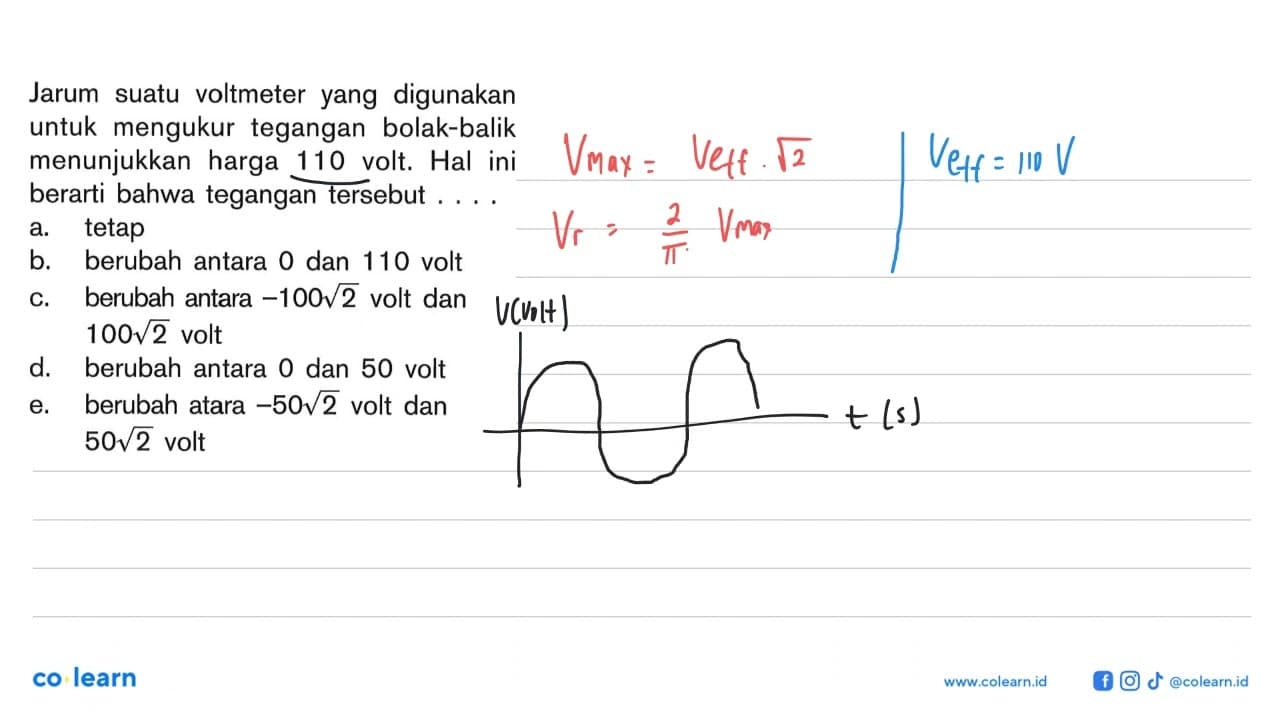 Jarum suatu voltmeter yang digunakan
untuk mengukur tegangan bolak-balik
menunjukkan harga 110 volt. Hal ini
berarti bahwa tegangan tersebut . . . .
a. tetap
b. berubah antara 0 dan 110 volt
c. berubah antara −100√2 volt dan
100√2 volt
d. berubah antara 0 dan 50 volt
e. berubah atara −50√2 volt dan
50√2 volt
Vmax = Veff . √2
Vr = 2/π Vmax
Veff = 110 V
V(Volt)
t (s)
co learn
www.colearn.id
@colearn.id